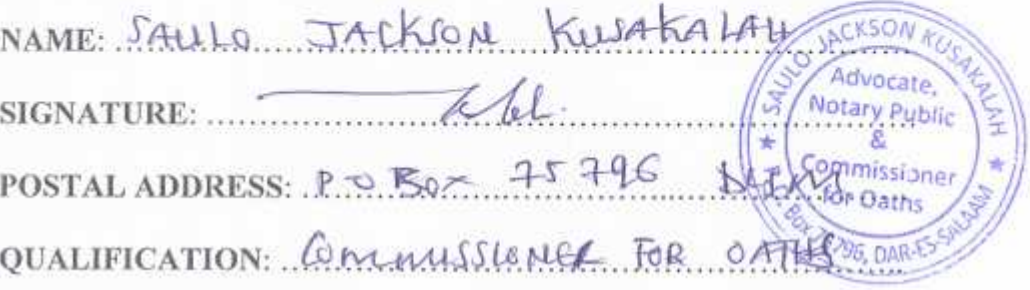 NAME: SAULO JACKSON KUSAKALAH
SIGNATURE:
POSTAL ADDRESS: P O Box 75796 DSM
QUALIFICATION: COMMISSIONER FOR OATHS
★ SAULO JACKSON KUSAKALAH ★
Advocate,
Notary Public
&
Commissioner
for Oaths
Box 75796, DAR-ES-SALAAM